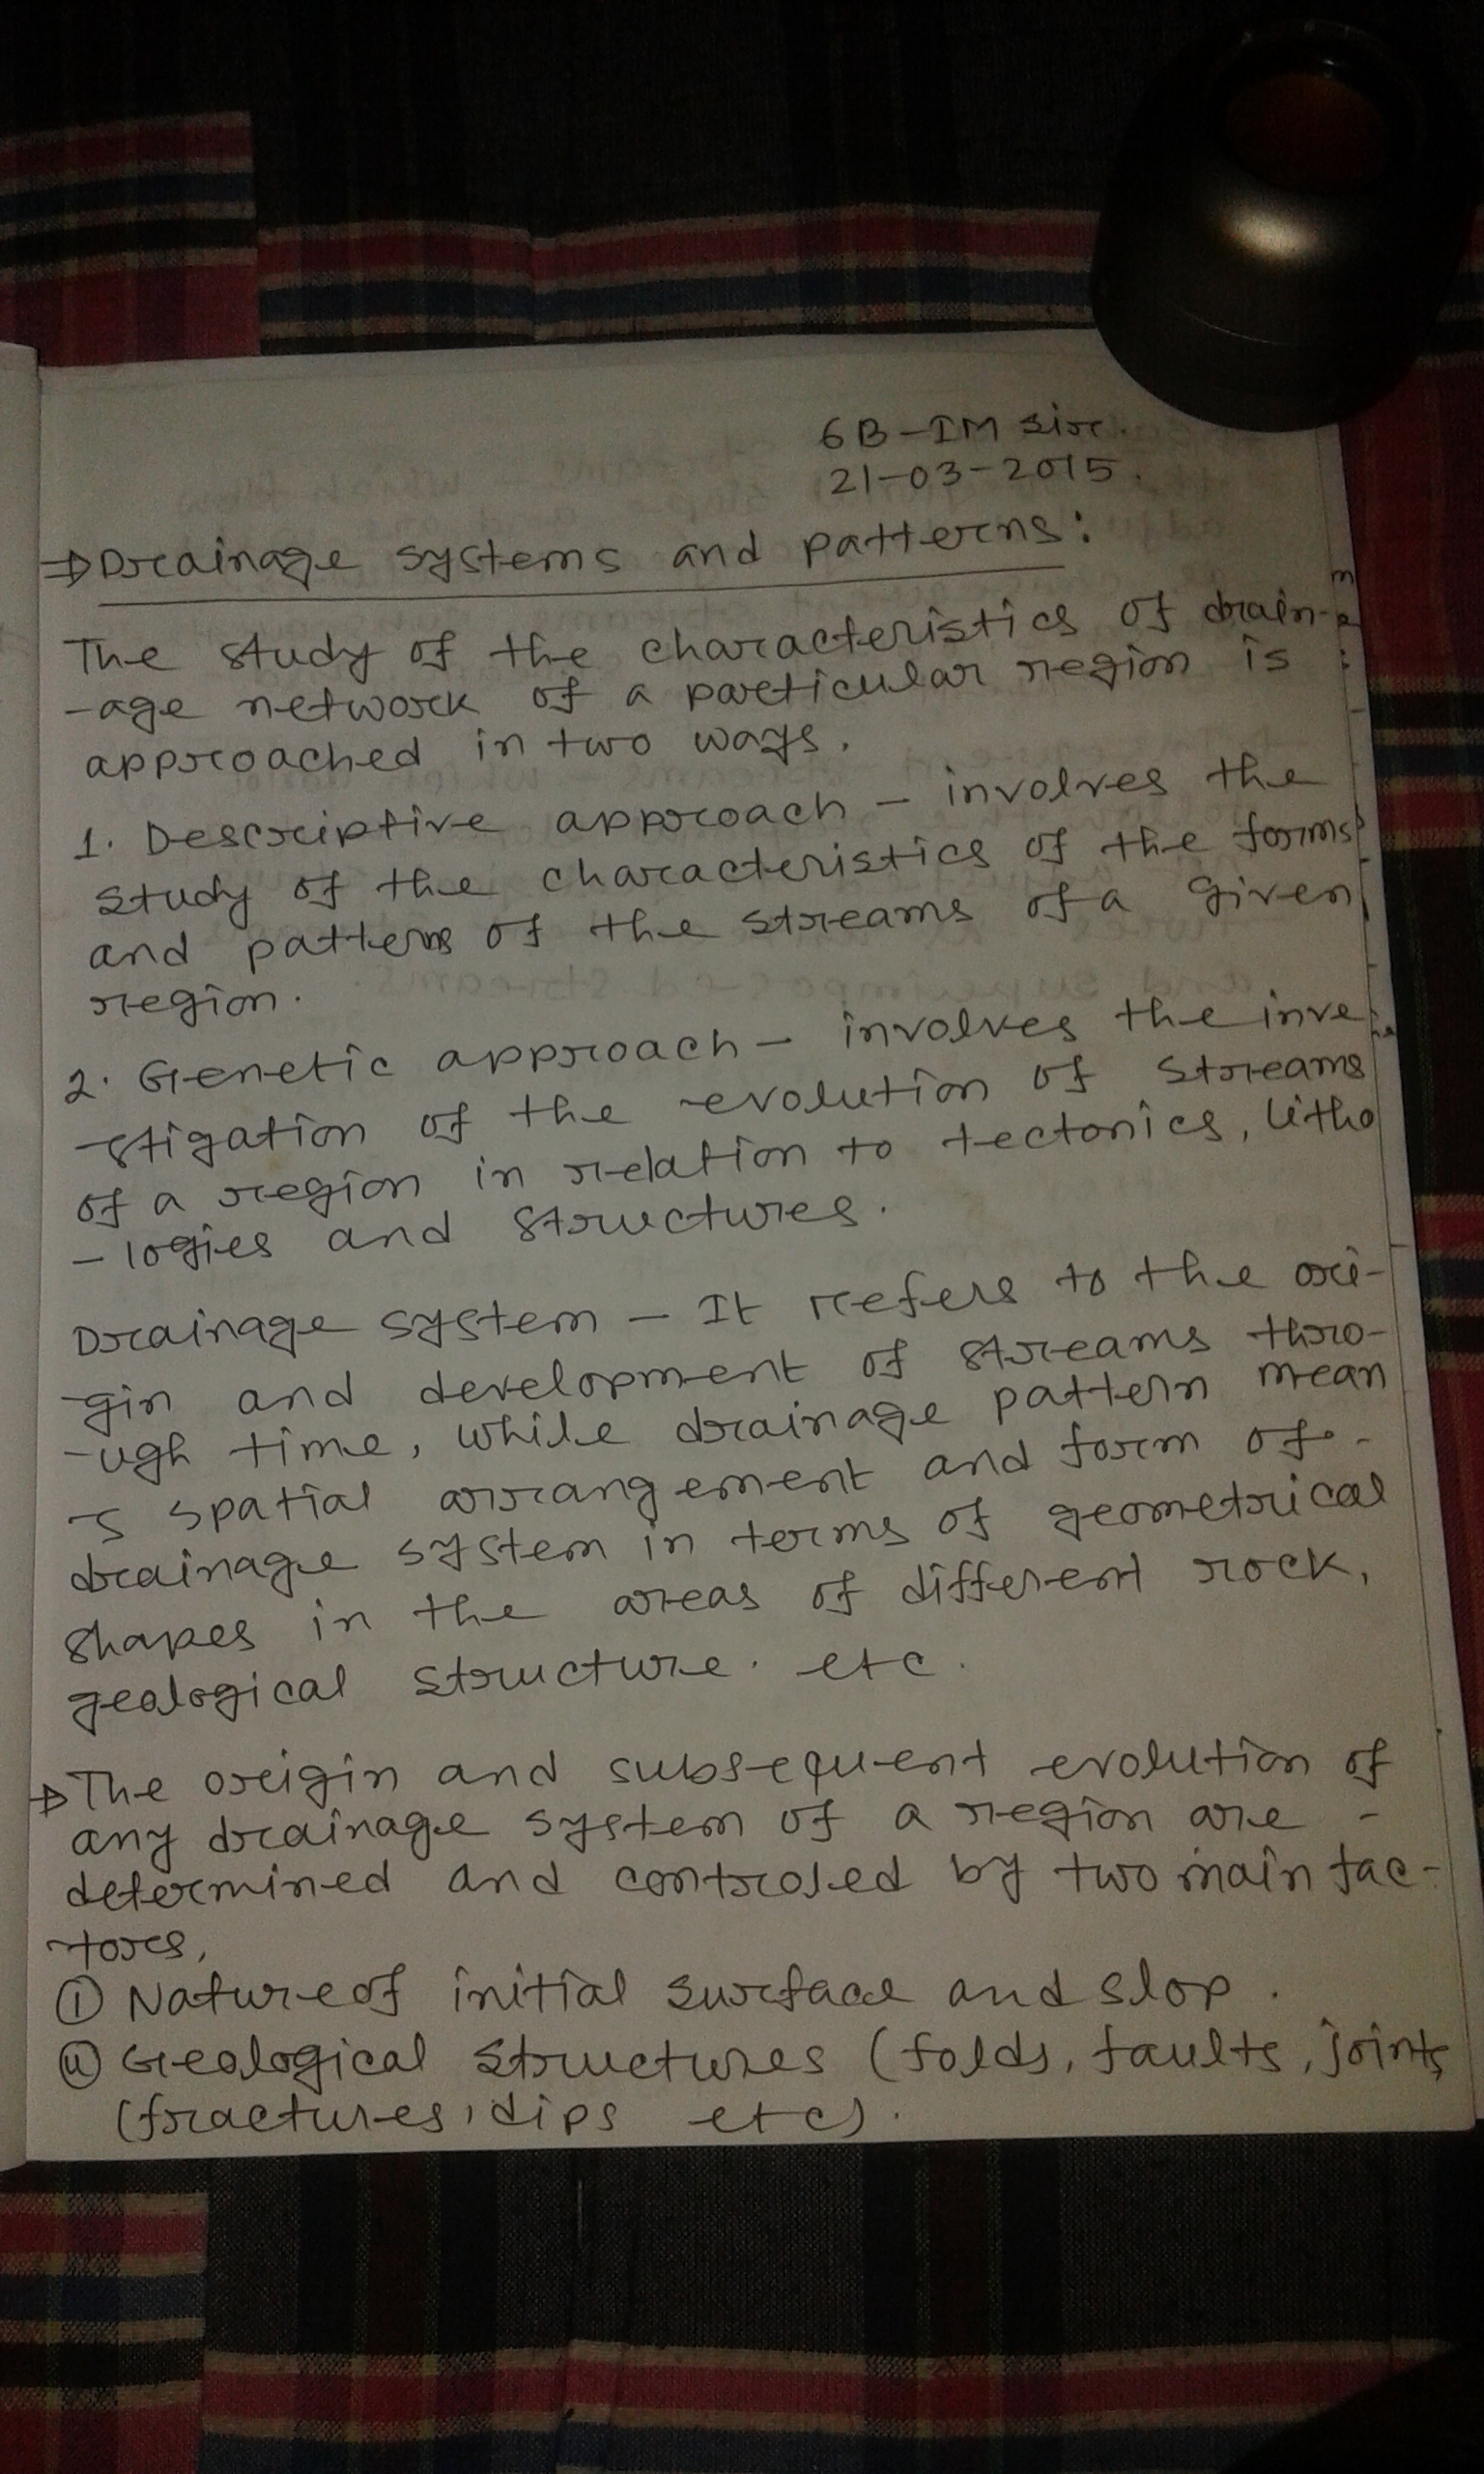 6B-IM sir.
21-03-2015.
⇒Drainage systems and patterns:
The study of the characteristics of drain-
-age network of a particular region is
approached in two ways.
1. Descriptive approach – involves the
study of the characteristics of the forms
and patterns of the streams of a given
region.
2. Genetic approach – involves the inve
-stigation of the evolution of streams
of a region in relation to tectonics, litho
-logies and structures.
Drainage system – It refers to the ori-
-gin and development of streams thro-
-ugh time, while drainage pattern mean
-s spatial arrangement and form of -
drainage system in terms of geometrical
shapes in the areas of different rock,
geological structure. etc.
→The origin and subsequent evolution of
any drainage system of a region are -
determined and controled by two main fac-
-tors,
(i) Nature of initial surface and slop.
(ii) Geological structures (folds, faults, joints,
(fractures, dips etc).